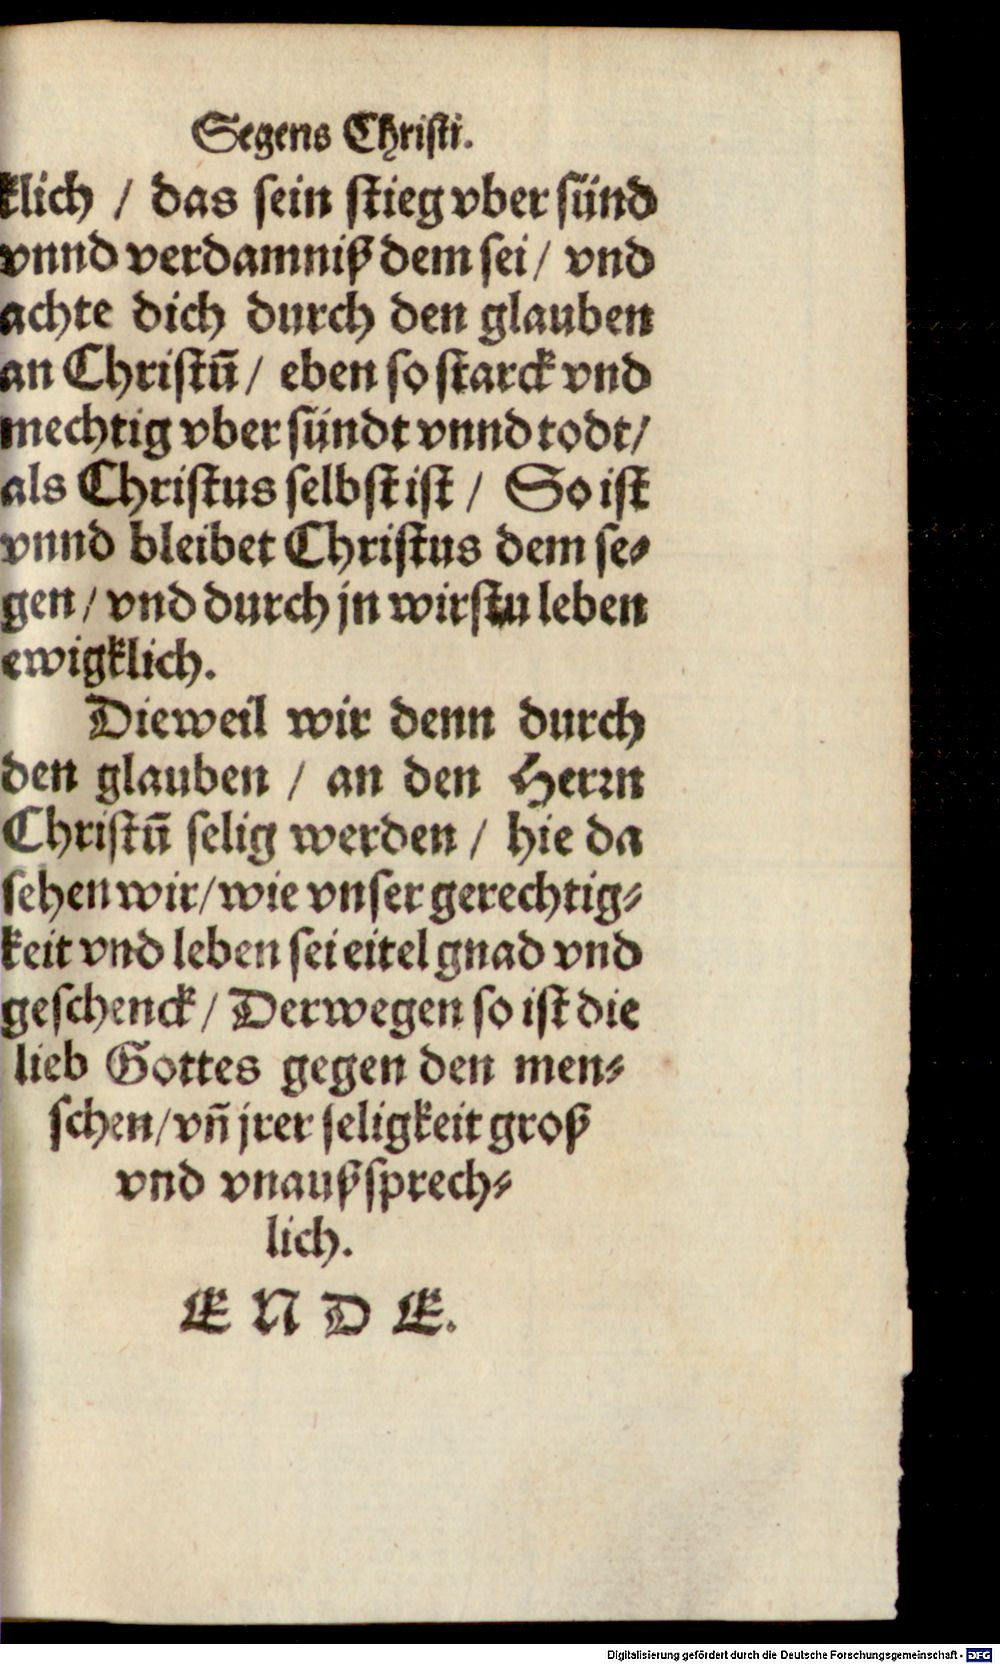 Segens Christi.
klich / das sein stieg vber sünd
vnnd verdamniß dem sei / vnd
achte dich durch den glauben
an Christū / eben so starck vnd
mechtig vber sündt vnnd todt /
als Christus selbst ist / So ist
vnnd bleibet Christus dem se⸗
gen / vnd durch jn wirstu leben
ewigklich.
Dieweil wir denn durch
den glauben / an den Herrn
Christū selig werden / hie da
sehen wir / wie vnser gerechtig⸗
keit vnd leben sei eitel gnad vnd
geschenck / Derwegen so ist die
lieb Gottes gegen den men⸗
schen / vn̄ jrer seligkeit groß
vnd vnaußsprech⸗
lich.
E N D E.
Digitalisierung gefördert durch die Deutsche Forschungsgemeinschaft - DFG